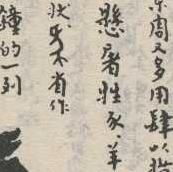 周又多用肆以
懸屠牲豕羊
不省作
鐘的一列